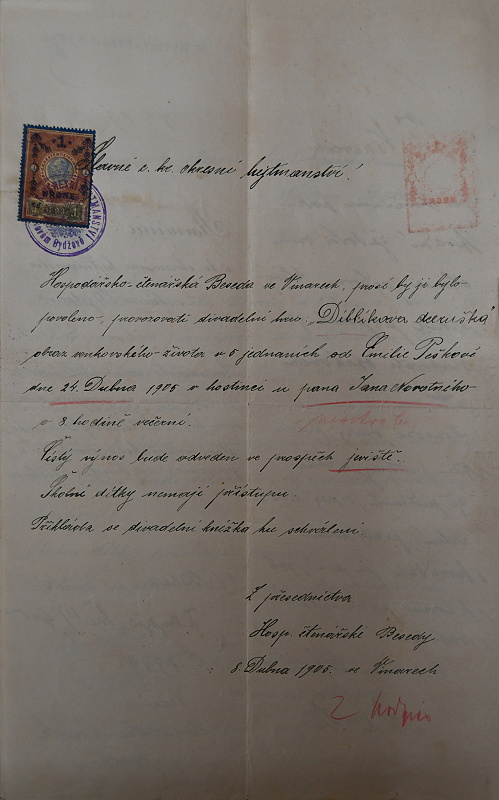 Slavné c. kr. okresní hejtmanství!
1
KRONE
Novém Bydžově
KRONE
Hospodářsko-čtenářská Beseda ve Vinarech, prosí by jí bylo
povoleno, provozovati divadelní hru „Diblíkova dceruška"
obraz venkovského života v 5 jednáních od Emilie Peškové
dne 24. Dubna 1905 v hostinci u pana Jana Novotného
v 8. hodině večerní.
Čistý výnos bude odveden ve prospěch jeviště.
Školní dítky nemají přístupu.
Přikládá se divadelní knížka ku schválení.
Z předsednictva
Hosp. čtenářské Besedy
8. Dubna 1905. ve Vinarech